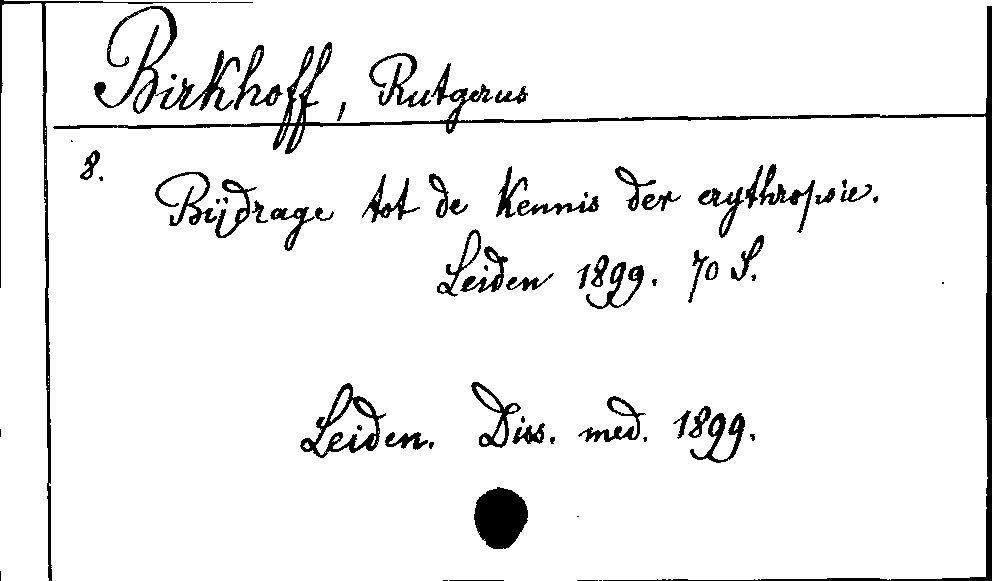 Birkhoff, Rutgerus
8.
Bijdrage tot de Kennis der erythropsie.
Leiden 1899. 70 S.
Leiden. Diss. med. 1899.